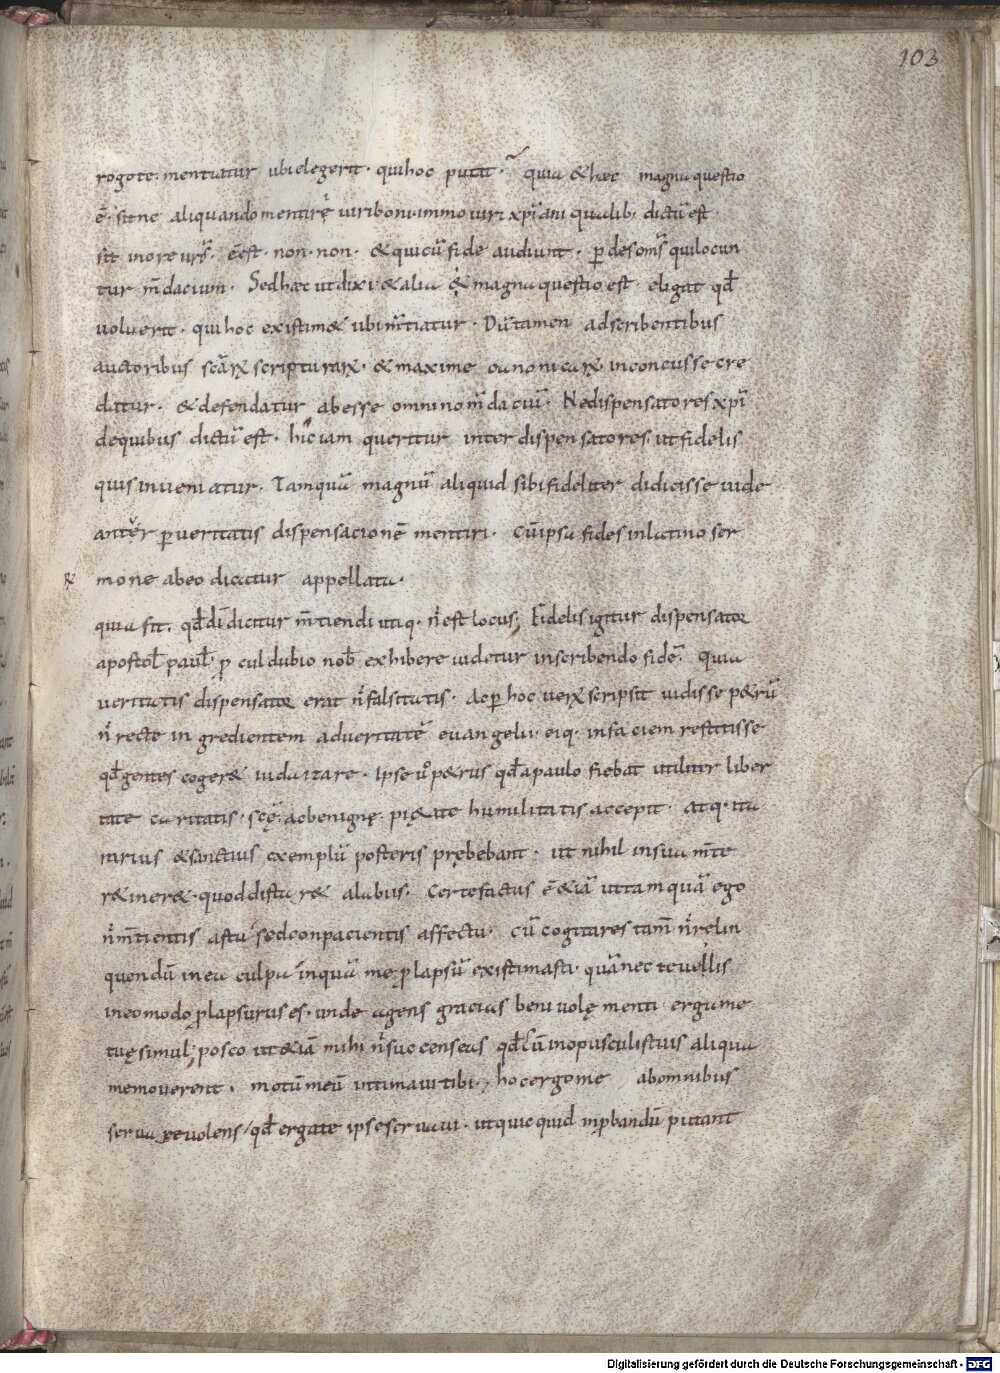 103
rogote. mentiatur ubi elegerit. qui hoc putat. quia & hęc magna questio
ē. sitne aliquando mentirę uiri boni. immo uiri xp̄iani qualib; dictū est.
sit in ore urs̄. ēest. non. non. & quicū fide audiunt. ꝑdes oms̄ qui locun
tur m̄dacium. Sed hæc ut dixi & alia & magna questio est. eligat qd̄
uoluerit. qui hoc existim& ubi m̄tiatur. Dū tamen adscribentibus
auctoribus scārꝝ scripturarꝝ. & maxime canonicarꝝ. inconcusse cre
datur. & defendatur abesse omnino m̄daciū. Ne dispensatores xp̄i
de quibus dictū est. hic iam queritur inter dispensatores. ut fidelis
quis inueniatur. Tamquā magnū aliquid sibi fideliter didicisse uide
antęr ꝑ ueritatis dispensacionē mentiri. Cū ipsa fides in latino ser
mone ab eo dicatur appellata.
quia fit. qd̄ di dicitur m̄tiendi utiq. n̄ est locus; Fidelis igitur dispensator
apostol̄ paul̄. ꝓcul dubio nob̄ exhibere uidetur in scribendo fidē. quia
ueritatis dispensator erat n̄ falsitatis. Ac ꝑ hoc uerꝝ scripsit uidisse p&rū
n̄ recte in gredientem ad ueritatē euangelii. eiq. in faciem restitisse
qd̄ gentes coger& iudaizare. Ipse u̅o p&rus qd̄ a paulo fiebat utiliter liber
tate caritatis. scę. ac benignę. pi&ate humilitatis accepit. atq. ita
rarius & sanctius exemplū posteris prębebant. ut nihil in sua m̄te
r&iner&. quod distar& alabus. Certe factus ē &iā ut tamquā ego
n̄ m̄tientis astu sed conpacientis affectu. Cū cogitares tam̄ n̄ relin
quendū in ea culpa in quā me ꝓlapsū existimasti. quā nec te uellis
in eo modo ꝓlapsurus es. unde agens gracias beniuolę menti erga me
tuę simul; posco ut &iā mihi n̄ succenseas qd̄ cū in opusculis tuis aliqua
me mouerent. motū meū intimaui tibi; hoc ergo me ab omnibus
seruare uolens / qd̄ erga te ipse seruaui. ut quicquid inꝓbandū putant